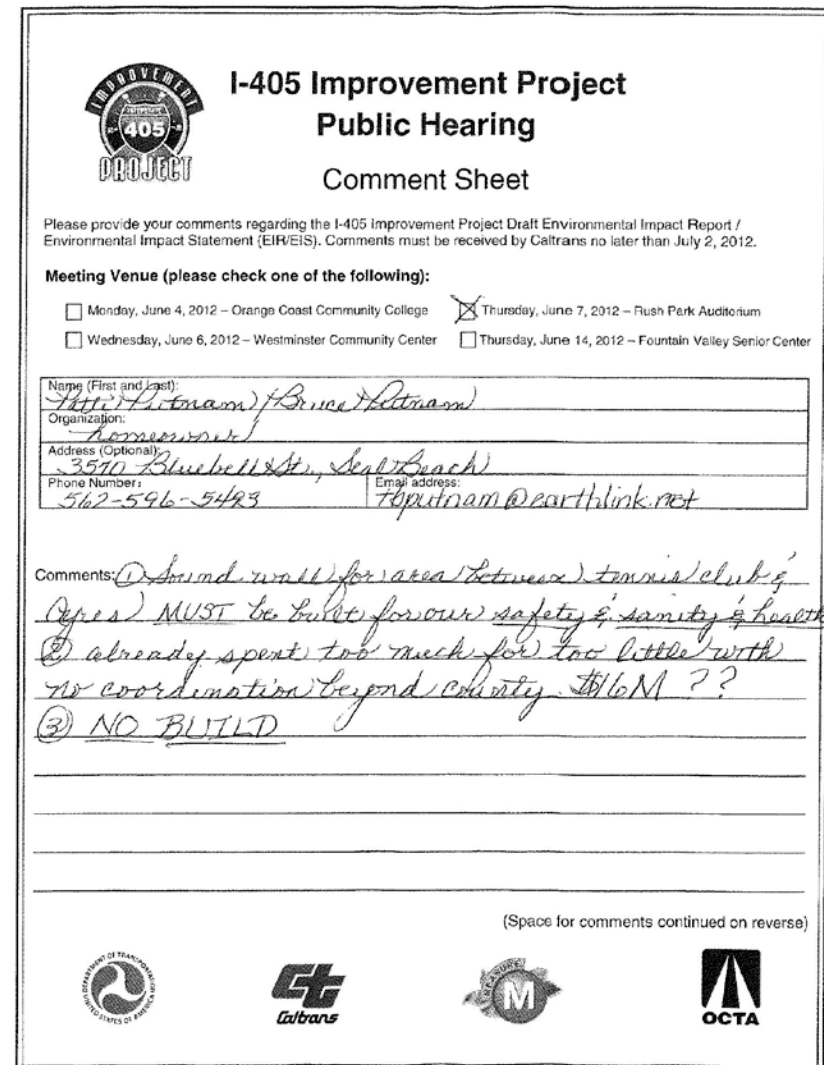 IMPROVEMENT
405
PROJECT
I-405 Improvement Project
Public Hearing
Comment Sheet
Please provide your comments regarding the I-405 Improvement Project Draft Environmental Impact Report /
Environmental Impact Statement (EIR/EIS). Comments must be received by Caltrans no later than July 2, 2012.
Meeting Venue (please check one of the following):
Monday, June 4, 2012 – Orange Coast Community College
Thursday, June 7, 2012 – Rush Park Auditorium
Wednesday, June 6, 2012 – Westminster Community Center
Thursday, June 14, 2012 – Fountain Valley Senior Center
Name (First and Last):
Patti Putnam / Bruce Putnam
Organization:
homeowner
Address (Optional):
3570 Bluebell Str., Seal Beach
Phone Number:
562-596-5493
Email address:
tbputnam@earthlink.net
Comments: ① Sound wall for area between tennis club &
Ayres MUST be built for our safety & sanity & health
② already spent too much for too little with
no coordination beyond county. $16M ??
③ NO BUILD
(Space for comments continued on reverse)
DEPARTMENT OF TRANSPORTATION
UNITED STATES OF AMERICA
Ct
Caltrans
MEASURE
M
OCTA